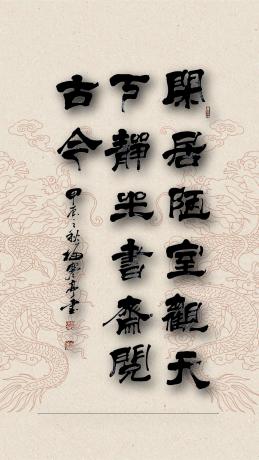 閑居陋室觀天
下靜坐書齋閱
古今
甲辰之秋